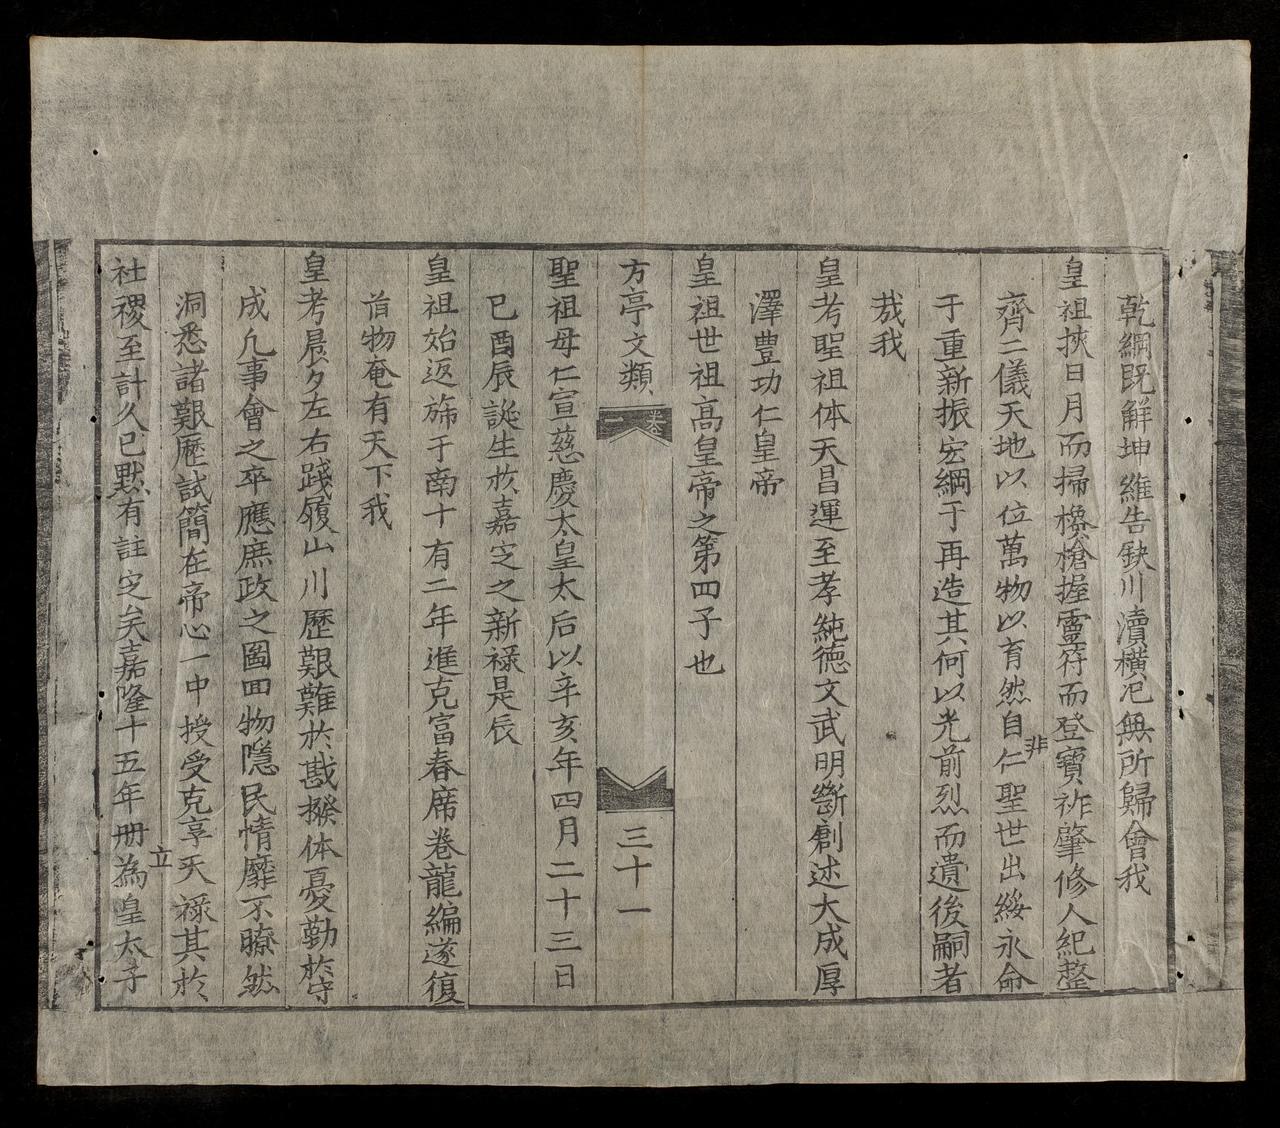 乾綱既解坤維告缺川瀆橫汜無所歸會我
皇祖挾日月而掃欃槍握靈符而登寶祚肇修人紀整
齊二儀天地以位萬物以育然自非仁聖世出綏永命
于重新振宏綱于再造其何以光前烈而遺後嗣者
哉我
皇考聖祖体天昌運至孝純德文武明斷創述大成厚
澤豊功仁皇帝
皇祖世祖高皇帝之第四子也
方亭文類
卷一
三十一
聖祖母仁宣慈慶太皇太后以辛亥年四月二十三日
己酉辰誕生於嘉定之新祿是辰
皇祖始返旆于南十有二年進克富春席卷龍編遂復
首物奄有天下我
皇考晨夕左右踐履山川歷艱難於戡撥体憂勤於守
成凢事會之卒應庶政之啚囬物隱民情靡不瞭然
洞悉諸艱歷試簡在帝心一中授受克享天祿其於
社稷至計久已默有註定矣嘉隆十五年冊立為皇太子